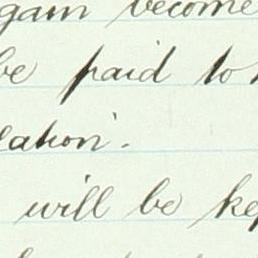 gain become
be paid to
lation.
will be kep